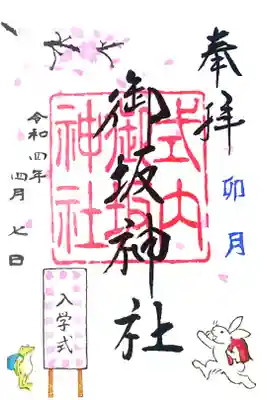 奉拝
卯月
御坂神社
式内
御坂
神社
令和四年
四月七日
入学式